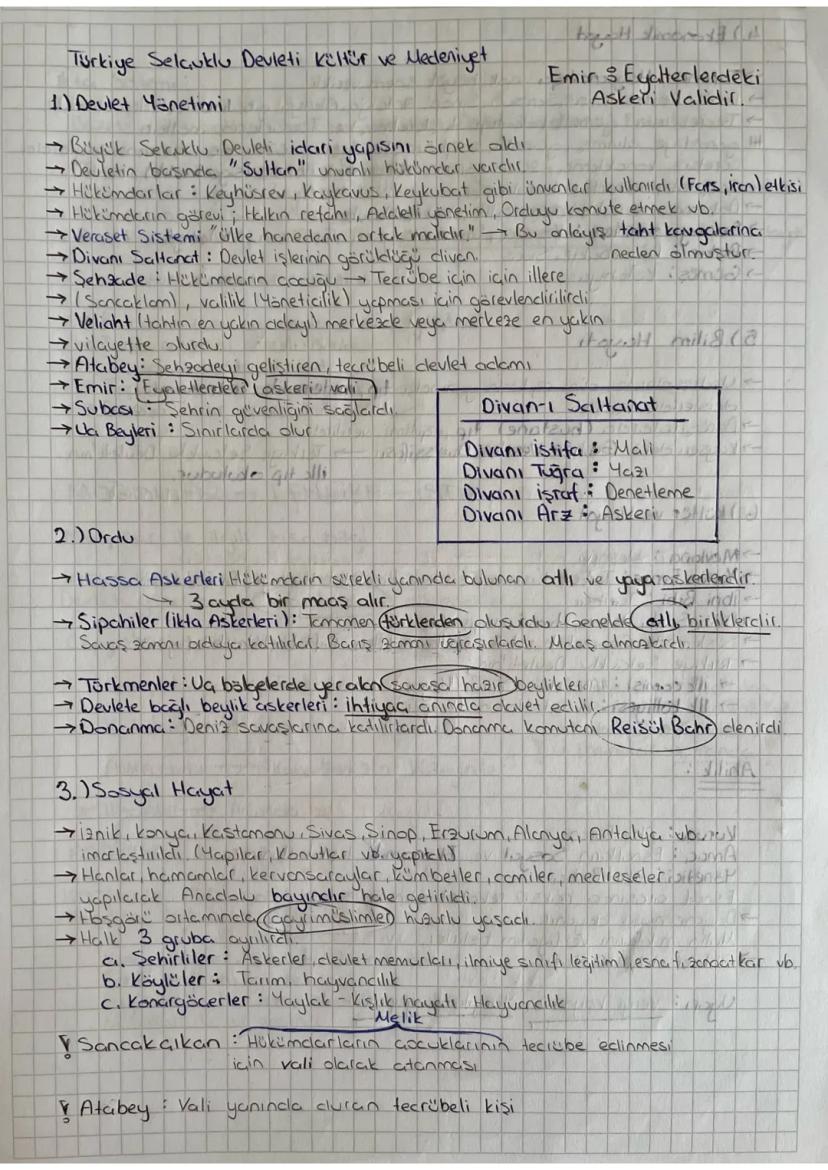 Türkiye Selçuklu Devleti Kültür ve Medeniyet
Emir : Eyalterlerdeki
Askeri Validir.
1.) Devlet Yönetimi
→ Büyük Selçuklu Devleti idari yapısını örnek aldı
→ Devletin başında "Sultan" unvanlı hükümdar vardır.
→ Hükümdarlar : Keyhüsrev, Kaykavus, Keykubat gibi ünvanlar kullanırdı (Fars, İran) etkisi
→ Hükümdarın görevi ; Halkın refahı, Adaletli yönetim, Orduyu komute etmek vb.
→ Veraset Sistemi "ülke hanedanın ortak malıdır." → Bu anlayış taht kavgalarına
neden olmuştur.
→ Divanı Saltanat : Devlet işlerinin görüldüğü divan
→ Şehzade : Hükümdarın çocuğu → Tecrübe için için illere
→ (Sancaklara), valilik (Yöneticilik) yapması için görevlendirilirdi
→ Veliaht (tahtın en yakın adayı) merkezde veya merkeze en yakın
→ vilayette olurdu
→ Atabey: Şehzadeyi geliştiren, tecrübeli devlet adamı
→ Emir : (Eyaletlerdeki) (askeri vali)
→ Subaşı : Şehrin güvenliğini sağlardı
→ Uç Beyleri : Sınırlarda olur
Divan-ı Saltanat
Divanı istifa : Mali
Divanı Tuğra : Yazı
Divanı işraf : Denetleme
Divanı Arz : Askeri
2.) Ordu
→ Hassa Askerleri Hükümdarın sürekli yanında bulunan atlı ve yaya askerlerdir.
→ 3 ayda bir maaş alır.
→ Sipahiler (ikta Askerleri) : Tamamen türklerden oluşurdu. Genelde atlı birliklerdir.
Savaş zamanı orduya katılırlar. Barış zamanı uğraşırlardı. Maaş almazlardı.
→ Türkmenler : Uç bölgelerde yer alan savaşa hazır beylikler
→ Devlete bağlı beylik askerleri : ihtiyaç anında davet edilir.
→ Donanma : Deniz savaşlarına katılırlardı. Donanma komutanı Reisül Bahr denirdi.
3.) Sosyal Hayat
→ iznik, konya, Kastamonu, Sivas, Sinop, Erzurum, Alanya, Antalya vb.
imarlaştırıldı (Yapılar, Konutlar vb. yapıldı)
→ Hanlar, hamamlar, kervansaraylar, kümbetler, camiler, medreseler
yapılarak Anadolu bayındır hale getirildi.
→ Hoşgörü ortamında gayrimüslimler huzurlu yaşadı.
→ Halk 3 gruba ayrılırdı.
a. Şehirliler : Askerler, devlet memurları, ilmiye sınıfı (eğitim), esnaf, zanaatkar vb.
b. Köylüler : Tarım, hayvancılık
c. Konargöçerler : Yaylak - Kışlık hayatı Hayvancılık
Melik
! Sancakalkan : Hükümdarların çocuklarının tecrübe edinmesi
için vali olarak atanması
! Atabey : Vali yanında duran tecrübeli kişi